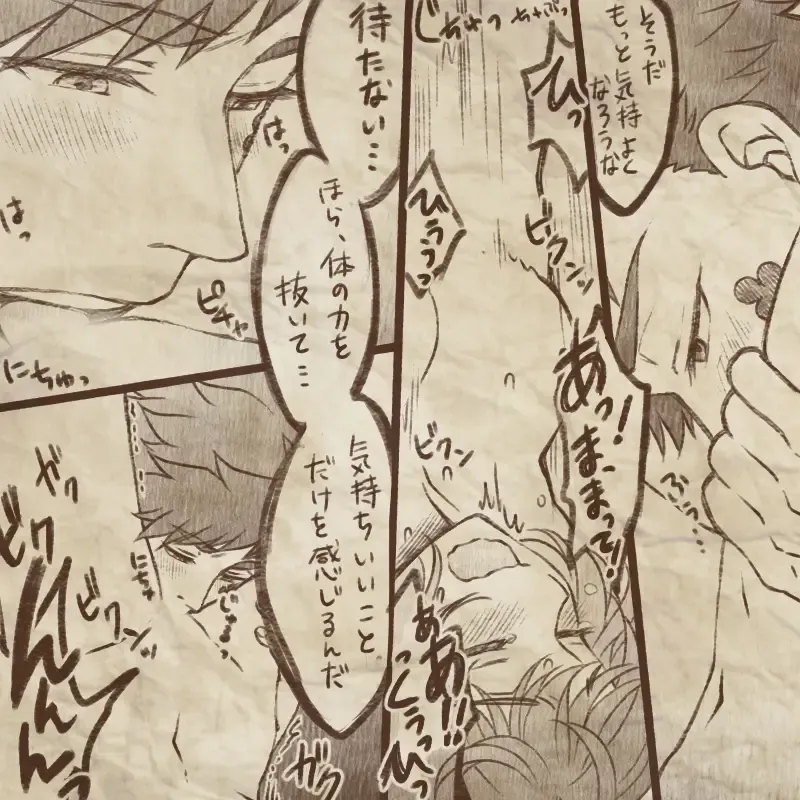 そうだ
もっと気持よく
なろうな
じゅっ
ひっ
びうっっ
ビクンッ
あっ！
ま、まって！
ビクン
ふっ…
ああ!!
待たない…
ほら、体の力を
抜いて…
気持ちいいこと
だけを感じるんだ
はっ
はっ
ピチャ
にちゅっ
ガク
ビク
ビクンッ
にちゃ
んんんっ
ガク